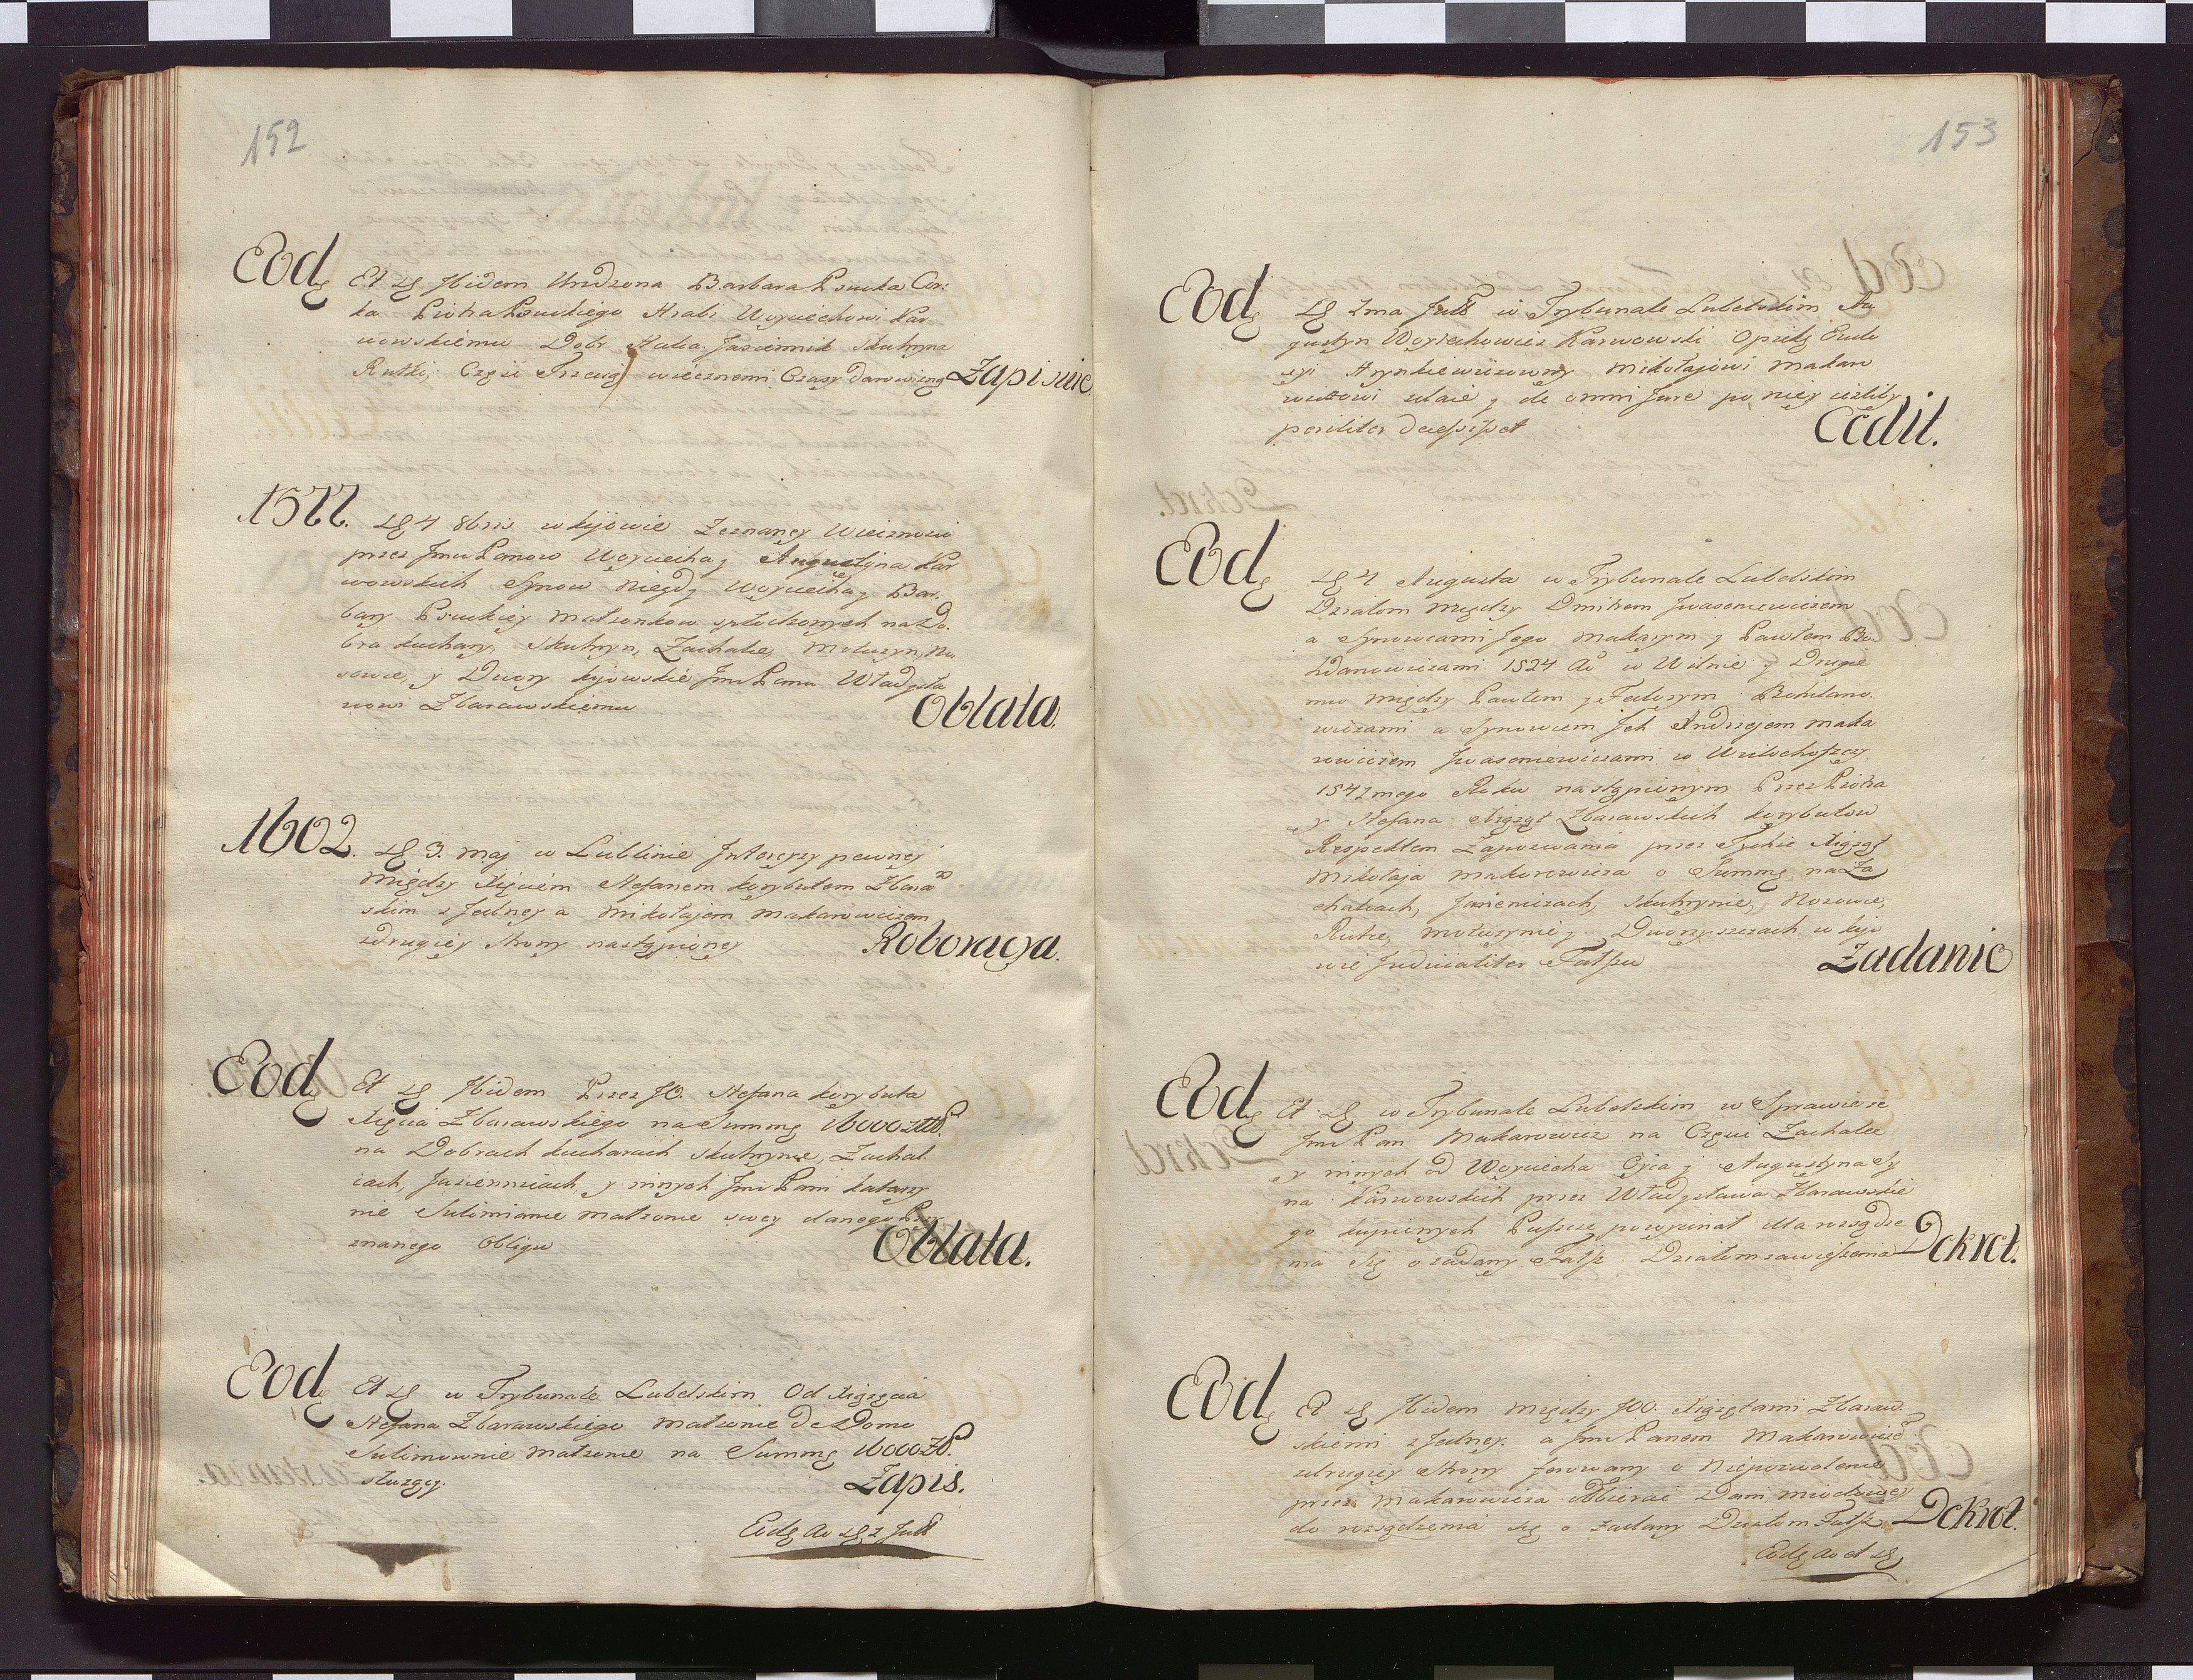 152
Eod Et D Ibidem Urodzona Barbara Psucka Cor:
ka Piotra Psuckiego Hrabi Woyciechowi Kar
wowskiemu Dobr Halia Jasiennik Skuhryna
Rutki, Częsci Trzecią wiecznemi Czasy darowizną Zapisuie
1577. D 4 8bris w Kijowie Zeznaney Wiecznosci
przez Jmci Panow Woyciecha y Augustyna Kar
wowskich Synow niegdy Woyciecha y Bar.
bary Psuckiey małzonkow spłodzonych na Do.
bra Kuchary, Skuhryn, Zachalce, Motuzyn, No
sowce, y Dwory Kijowskie Jmci Panu Władysła
wowi Zbarawskiemu Oblata.
1602. D 3. Maj w Lublinie Intercyzy pewney
między Xięciem Stefanem Korybutem Zbara
skim z Jedney a Mikołajem Makarowiczem
z drugiey strony nastąpioney Roboracya.
Eod Et D Ibidem Przez JO. Stefana Korybuta
Xięcia Zbarawskiego na Summę 16000 ztt P.
na Dobrach Kucharach Skuhrynie, Zachal
cach, Jasiennicach, y innych Jmci Pani Katarzy
nie Sulimiance małzonce swey danego Przy
znanego Obligu Oblata.
Eod Et D w Trybunale Lubelskim Od Xiążęcia
Stefana Zbarawskiego małzonce de Domo
Sulimownie małzonce na Summę 16000 Zł P.
służący. Zapis.
Eodę Ao D 2 Julii
153
Eod D 2ma Julii w Trybunale Lubelskim Au
gustyn Woyciechowicz Karwowski Opiekę Eudo
xyi Hrynkiewiczowny Mikołajowi Makaro
wiczowi zdaie y de omni Jure po niey
Cedit.
Eod D 4 Augusta w Trybunale Lubelskim
Działom między Dmitrem Iwaseniewiczem
a Synowcami Jego Makarym y Pawłem Bo
hdanowiczami 1524 Ao w Wilnie y Drugie
mu między Pawłem y Fedorym Bohdano.
wiczami a Synowcem Ich Andrzejem Maka
rowiczem Iwaseniewiczami w
1542mego Roku nastąpionym Przez Piotra
y Stefana Xiążąt Zbarawskich Korybutow
Respektem Zapozwania przez Tychże Xiążąt
Mikołaja Makarowicza o Summę na Za
chalcach, Jasienicach, Skuhrynie, Nosowce,
Rutce, Motuzynie y Dworzyszczach w Kijo
wie Judicialiter Fałszu Zadanie
Eod Et D w Trybunale Lubelskim w Sprawie ze
Jmci Pan Makarowicz na Części Zachalce
y innych od Woyciecha Oyca y Augustyna Sy
na Karwowskich przez Władysława Zbarawskie
go kupionych Puszcze powycinał dla rozsądze
nia się o zadany Fałsz Działom zawieszenia Dekret.
Eod Et D Ibidem między JOO. Xiążętami Zbaraw
skiemi z Jedney. a Jmci Panem Makarowicz
z drugiey strony ferowany o Niepozwolenie
przez Makarowicza Odbierać Dani miodowey
do rozsądzenia się o zadany Działom Fałsz Dekret.
Eodę Ao et D